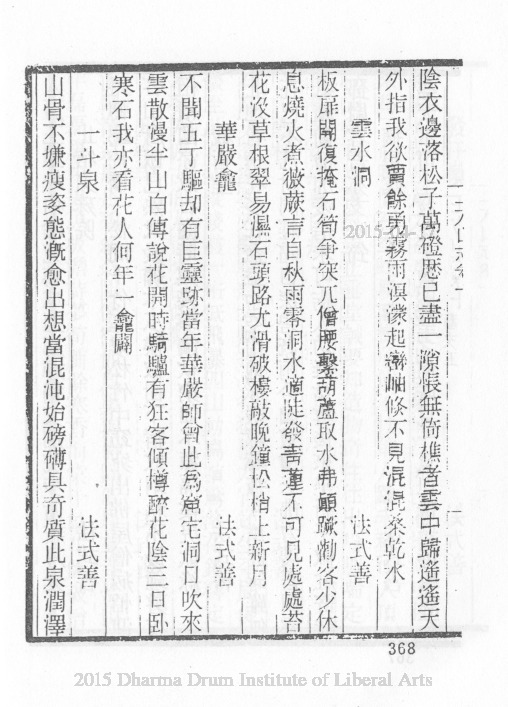 陰衣邊落松子萬磴歷已盡一隙悵無倚樵者雲中歸遙遙天
外指我欲賈餘勇霧雨溟濛起巒岫倏不見混混桑乾水
雲水洞 法式善
板扉開復掩石筍爭突兀僧腰繫葫蘆取水弗顛蹶勸客少休
息燒火煮薇蕨言自秋雨零洞水適陡發青蓮不可見處處苔
花沒草根翠易濕石頭路尤滑破樓敲晚鐘松梢上新月
華嚴龕 法式善
不聞五丁驅却有巨靈跡當年華嚴師曾此為窟宅洞口吹來
雲散漫半山白傳說花開時騎驢有狂客傾樽醉花陰三日臥
寒石我亦看花人何年一龕闢
一斗泉 法式善
山骨不嫌瘦姿態漑愈出想當混沌始磅礴具奇質此泉潤澤
368
2015 Dharma Drum Institute of Liberal Arts